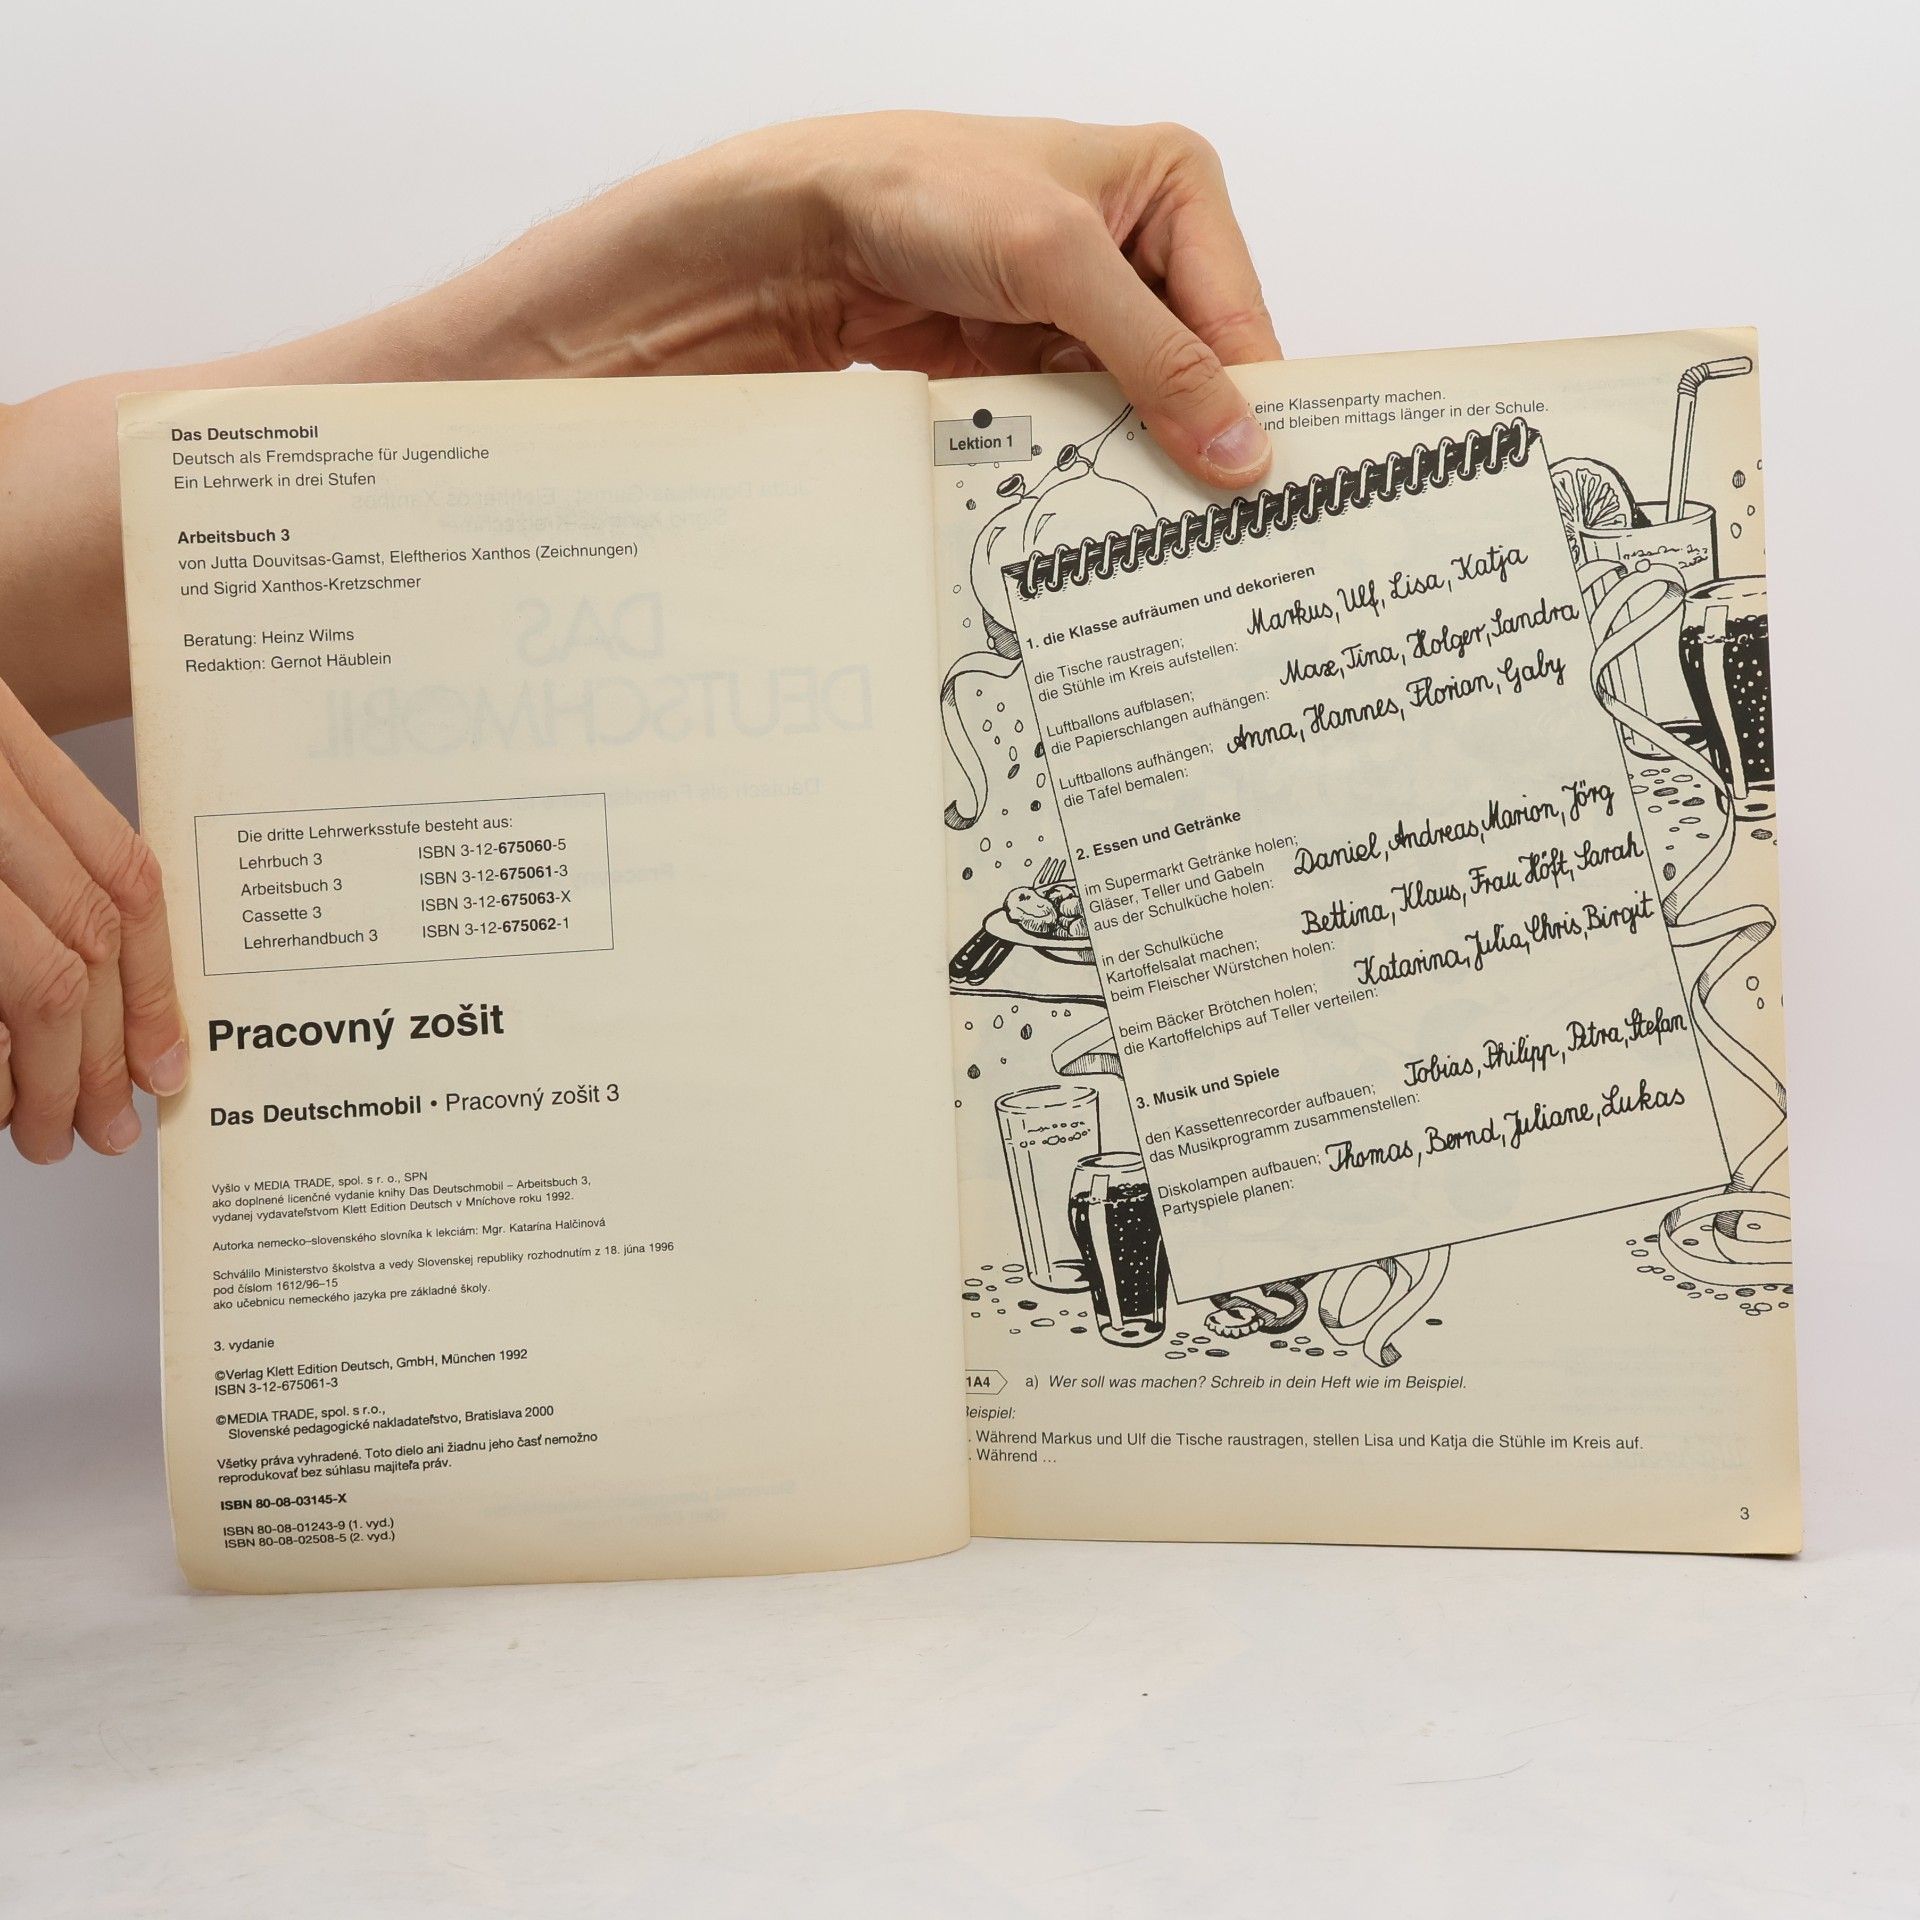 Das Deutschmobil
Deutsch als Fremdsprache für Jugendliche
Ein Lehrwerk in drei Stufen
Arbeitsbuch 3
von Jutta Douvitsas-Gamst, Eleftherios Xanthos (Zeichnungen)
und Sigrid Xanthos-Kretzschmer
Beratung: Heinz Wilms
Redaktion: Gernot Häublein
Die dritte Lehrwerksstufe besteht aus:
Lehrbuch 3 ISBN 3-12-675060-5
Arbeitsbuch 3 ISBN 3-12-675061-3
Cassette 3 ISBN 3-12-675063-X
Lehrerhandbuch 3 ISBN 3-12-675062-1
Pracovný zošit
Das Deutschmobil • Pracovný zošit 3
Vyšlo v MEDIA TRADE, spol. s r. o., SPN
ako doplnené licenčné vydanie knihy Das Deutschmobil – Arbeitsbuch 3,
vydanej vydavateľstvom Klett Edition Deutsch v Mníchove roku 1992.
Autorka nemecko–slovenského slovníka k lekciám: Mgr. Katarína Halčinová
Schválilo Ministerstvo školstva a vedy Slovenskej republiky rozhodnutím z 18. júna 1996
pod číslom 1612/96–15
ako učebnicu nemeckého jazyka pre základné školy.
3. vydanie
©Verlag Klett Edition Deutsch, GmbH, München 1992
ISBN 3-12-675061-3
©MEDIA TRADE, spol. s r.o.,
Slovenské pedagogické nakladateľstvo, Bratislava 2000
Všetky práva vyhradené. Toto dielo ani žiadnu jeho časť nemožno
reprodukovať bez súhlasu majiteľa práv.
ISBN 80-08-03145-X
ISBN 80-08-01243-9 (1. vyd.)
ISBN 80-08-02508-5 (2. vyd.)
Lektion 1
eine Klassenparty machen.
und bleiben mittags länger in der Schule.
1. die Klasse aufräumen und dekorieren
die Tische raustragen;
die Stühle im Kreis aufstellen: Markus, Ulf, Lisa, Katja
Luftballons aufblasen;
die Papierschlangen aufhängen: Max, Tina, Holger, Sandra
Luftballons aufhängen;
die Tafel bemalen: Anna, Hannes, Florian, Gaby
2. Essen und Getränke
im Supermarkt Getränke holen;
Gläser, Teller und Gabeln
aus der Schulküche holen: Daniel, Andreas, Marion, Jörg
in der Schulküche
Kartoffelsalat machen;
beim Fleischer Würstchen holen: Bettina, Klaus, Frau Höft, Sarah
beim Bäcker Brötchen holen;
die Kartoffelchips auf Teller verteilen: Katarina, Julia, Chris, Birgit
3. Musik und Spiele
den Kassettenrecorder aufbauen;
das Musikprogramm zusammenstellen: Tobias, Philipp, Petra, Stefan
Diskolampen aufbauen;
Partyspiele planen: Thomas, Bernd, Juliane, Lukas
1A4 a) Wer soll was machen? Schreib in dein Heft wie im Beispiel.
Beispiel:
. Während Markus und Ulf die Tische raustragen, stellen Lisa und Katja die Stühle im Kreis auf.
. Während ...
3